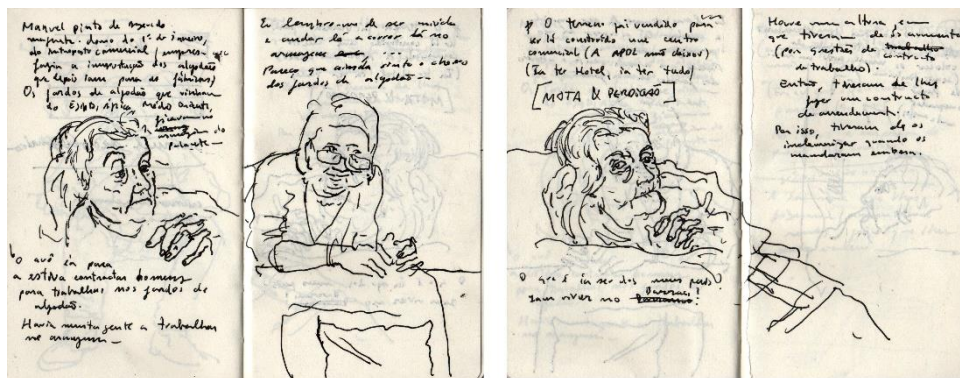 Manuel Pinto de Azevedo
dono do 1º de Janeiro,
do entreposto comercial / empresa que
fazia a importação dos algodões
que depois iam para as fábricas)
Os fardos de algodão que vinham
do Egipto, África, Médio Oriente,
ficavam no
armazém do
palacete —
O avô ia para
a estiva contratar homens
para trabalhar nos fardos de
algodão.
Havia muita gente a trabalhar
no armazém —
Eu lembro-me de ser miúda
e andar lá a correr lá no
armazém
Parece que ainda sinto o cheiro
dos fardos de algodão —
O terreno foi vendido para
ser lá construído um centro
comercial (A APDL não deixou)
(Ia ter Hotel, ia ter tudo)
[MOTA & PERDIGÃO]
O que é ia ser dos meus pais?
Iam viver no
Houve uma altura, em
que tiveram de os aumentar
(por questões de
contrato
de trabalho).
Então, tiveram de lhes
fazer um contracto
de arrendamento.
Por isso, tiveram de os
indemnizar quando os
mandaram embora.